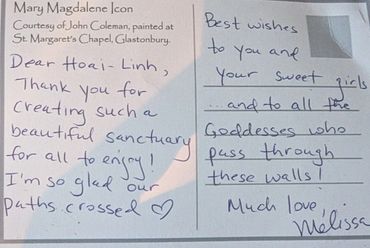 Mary Magdalene Icon
Courtesy of John Coleman, painted at
St. Margaret's Chapel, Glastonbury.
Dear Hoai-Linh,
Thank you for
creating such a
beautiful sanctuary
for all to enjoy!
I'm so glad our
paths crossed ♡
Best wishes
to you and
your sweet girls
...and to all the
Goddesses who
pass through
these walls!
Much love,
Melissa